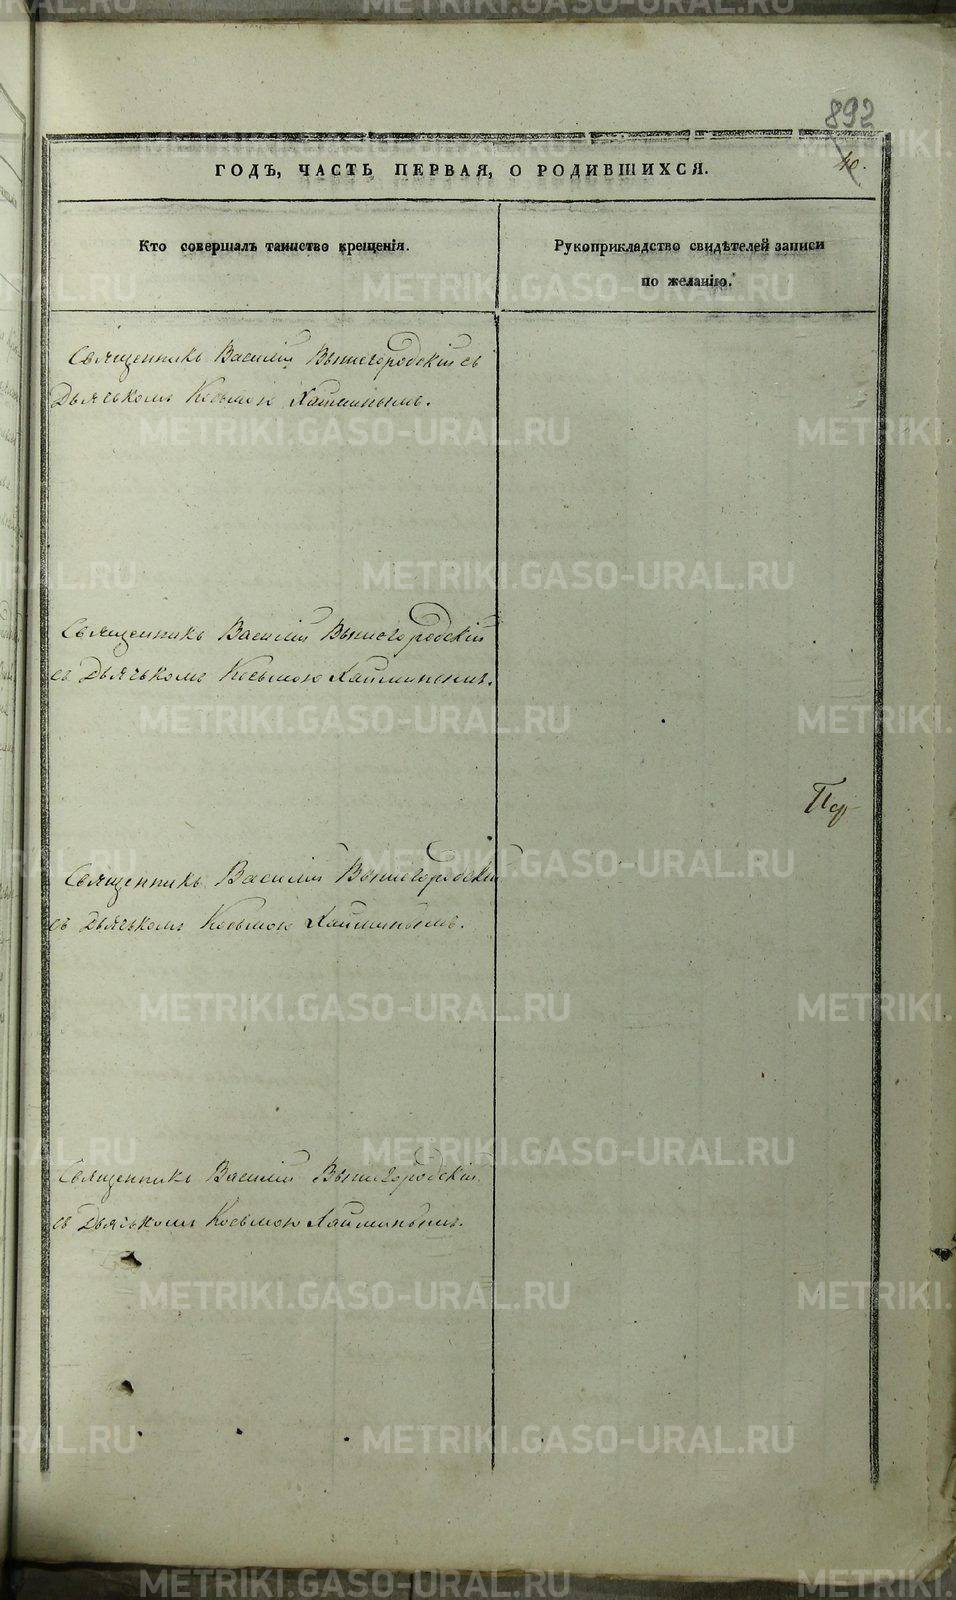 892
40.
ГОДЪ, ЧАСТЬ ПЕРВАЯ, О РОДИВШИХСЯ.
Кто совершалъ таинство крещенія.
Рукоприкладство свидѣтелей записи
по желанію.
Священникъ Василій Вышегородскій съ
Дьячькомъ Косьмою Хайминымъ.
Священникъ Василій Вышегородскій
съ Дьячькомъ Косьмою Хайминымъ.
Священникъ Василій Вышегородскій
съ Дьячькомъ Косьмою Хайминымъ.
Священникъ Василій Вышегородскій
съ Дьячькомъ Косьмою Хайминымъ.
METRIKI.GASO-URAL.RU